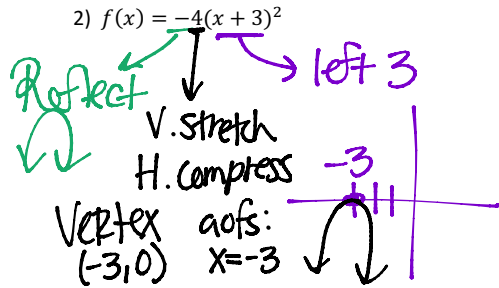 2) f(x) = −4(x + 3)²
left 3
Reflect
V. stretch
H. Compress
-3
Vertex
(-3,0)
aofs:
x=-3